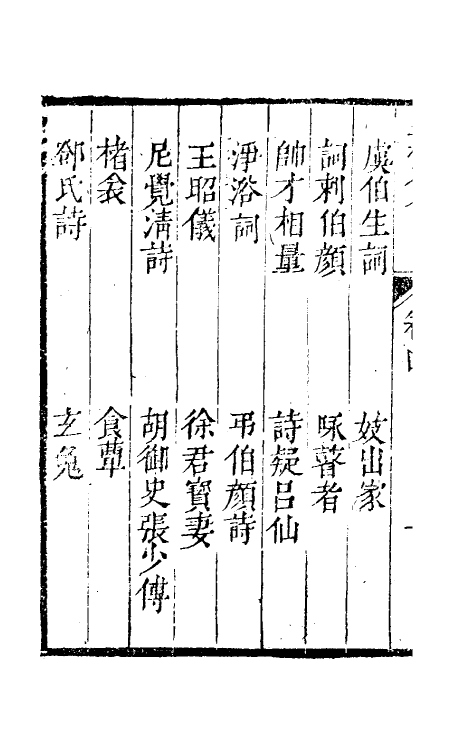 虞伯生詞　妓出家
詞刺伯顏　咏瞽者
帥才相量　詩疑呂仙
淨浴詞　弔伯顏詩
王昭儀　徐君寶妻
尼覺淸詩　胡御史張少傅
楮衾　食蕈
鄒氏詩　玄兔